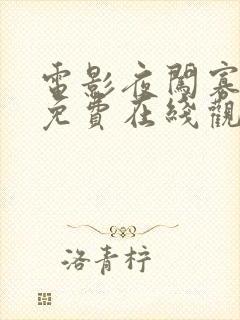 電影夜闖寡
免費在綫觀
洛青柠